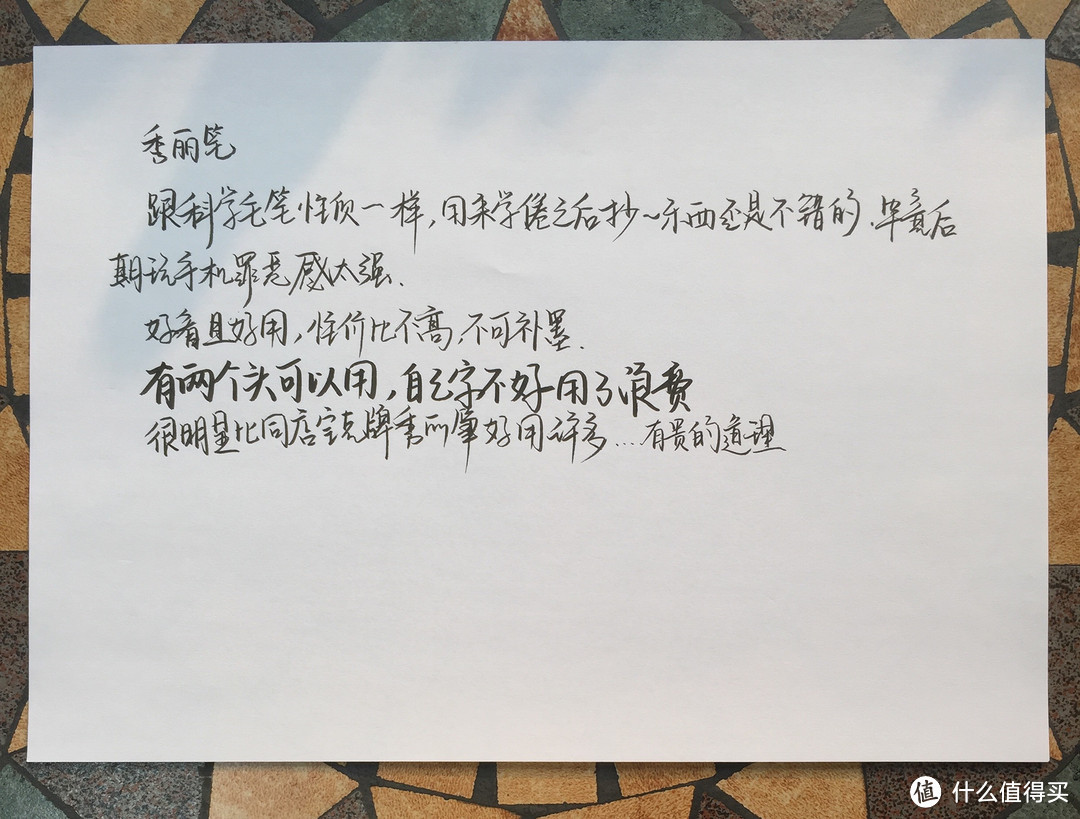 秀丽笔
跟科学毛笔性质一样,用来学倦之后抄~东西还是不错的.毕竟后
期玩手机罪恶感太强.
好看且好用,性价比不高,不可补墨.
有两个头可以用,自己字不好用了浪费
很明显比同店宝克牌秀丽笔好用许多...有贵的道理
值 什么值得买